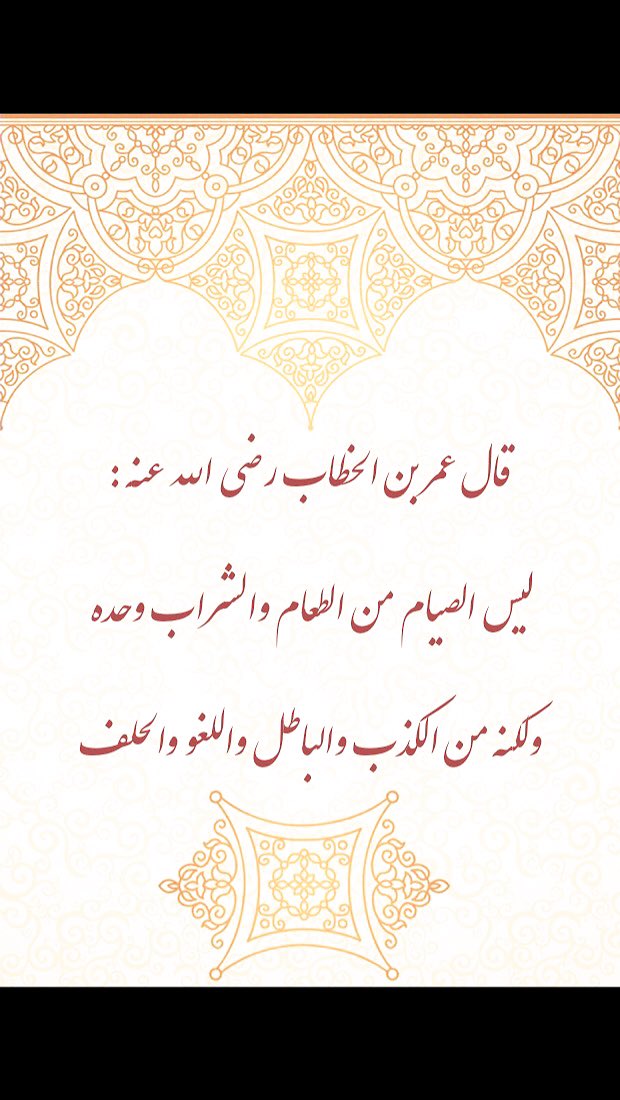 قال عمر بن الخطاب رضی الله عنه :
لیس الصیام من الطعام والشراب وحده
ولكنه من الكذب والباطل واللغو والحلف